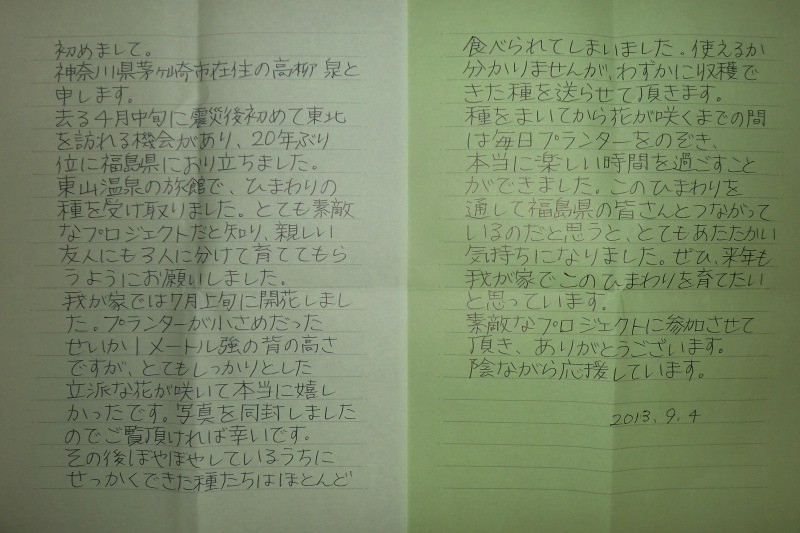 初めまして。
神奈川県茅ヶ崎市在住の高柳 泉と
申します。
去る4月中旬に震災後初めて東北
を訪れる機会があり、20年ぶり
位に福島県におり立ちました。
東山温泉の旅館で、ひまわりの
種を受け取りました。とても素敵
なプロジェクトだと知り、親しい
友人にも3人に分けて育ててもら
うようにお願いしました。
我が家では7月上旬に開花しまし
た。プランターが小さめだった
せいか1メートル強の背の高さ
ですが、とてもしっかりとした
立派な花が咲いて本当に嬉し
かったです。写真を同封しました
のでご覧頂ければ幸いです。
その後ぼやぼやしているうちに
せっかくできた種たちはほとんど
食べられてしまいました。使えるか
分かりませんが、わずかに収穫で
きた種を送らせて頂きます。
種をまいてから花が咲くまでの間
は毎日プランターをのぞき、
本当に楽しい時間を過ごすこと
ができました。このひまわりを
通して福島県の皆さんとつながって
いるのだと思うと、とてもあたたかい
気持ちになりました。ぜひ、来年も
我が家でこのひまわりを育てたい
と思っています。
素敵なプロジェクトに参加させて
頂き、ありがとうございます。
陰ながら応援しています。
2013.9.4